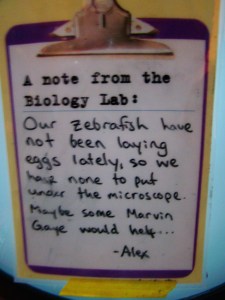 A note from the
Biology Lab:
Our zebrafish have
not been laying
eggs lately, so we
have none to put
under the microscope.
Maybe some Marvin
Gaye would help...
-Alex